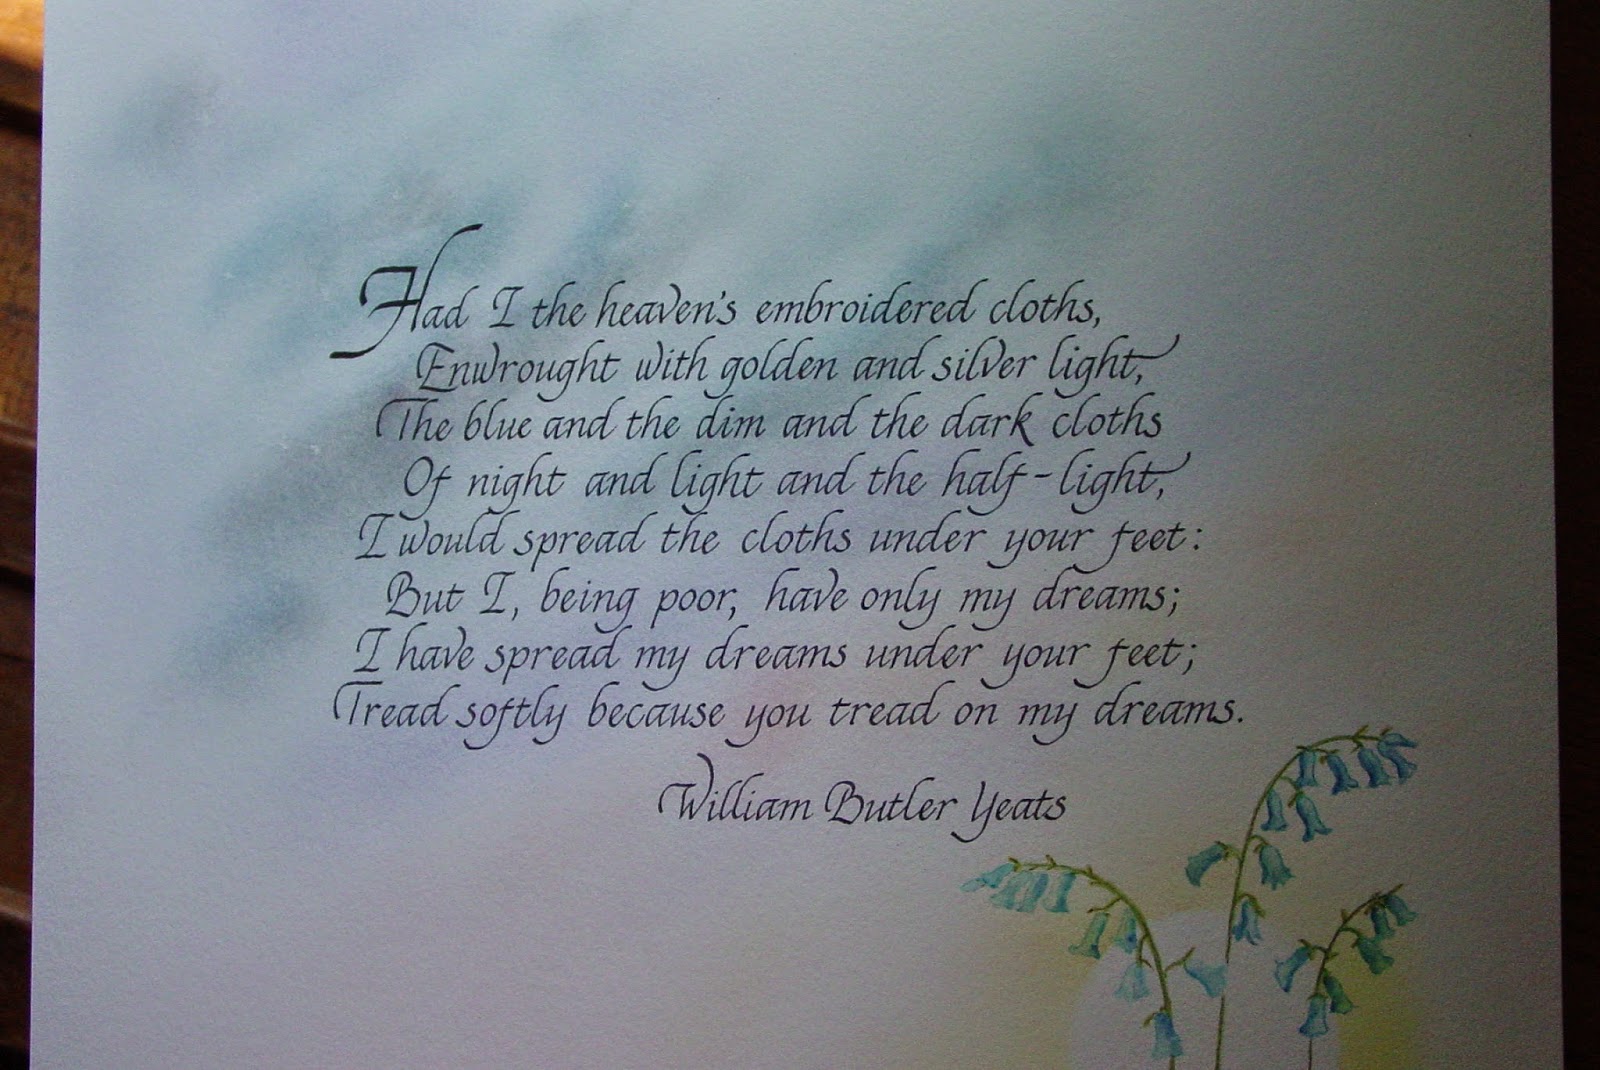 Had I the heaven's embroidered cloths,
Enwrought with golden and silver light,
The blue and the dim and the dark cloths
Of night and light and the half-light,
I would spread the cloths under your feet:
But I, being poor, have only my dreams;
I have spread my dreams under your feet;
Tread softly because you tread on my dreams.
William Butler Yeats